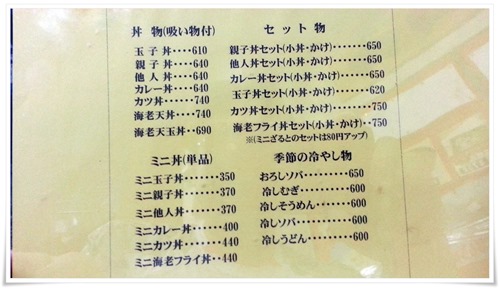 丼物(吸い物付)
玉子丼････610
親子丼････640
他人丼････640
カレー丼････640
カツ丼････740
海老天丼････740
海老天玉丼･･690
ミニ丼(単品)
ミニ玉子丼･････350
ミニ親子丼･････370
ミニ他人丼･････370
ミニカレー丼････400
ミニカツ丼･････440
ミニ海老フライ丼･･440
セット物
親子丼セット(小丼･かけ)･･･････650
他人丼セット(小丼･かけ)･･･････650
カレー丼セット(小丼･かけ)･･････650
玉子丼セット(小丼･かけ)･･･････620
カツ丼セット(小丼･かけ)･･･････750
海老フライ丼セット(小丼･かけ)･･750
※(ミニざるとのセットは80円アップ)
季節の冷やし物
おろしソバ･････････650
冷しむぎ･･････････600
冷しそうめん････････600
冷しソバ･･････････600
冷しうどん･････････600